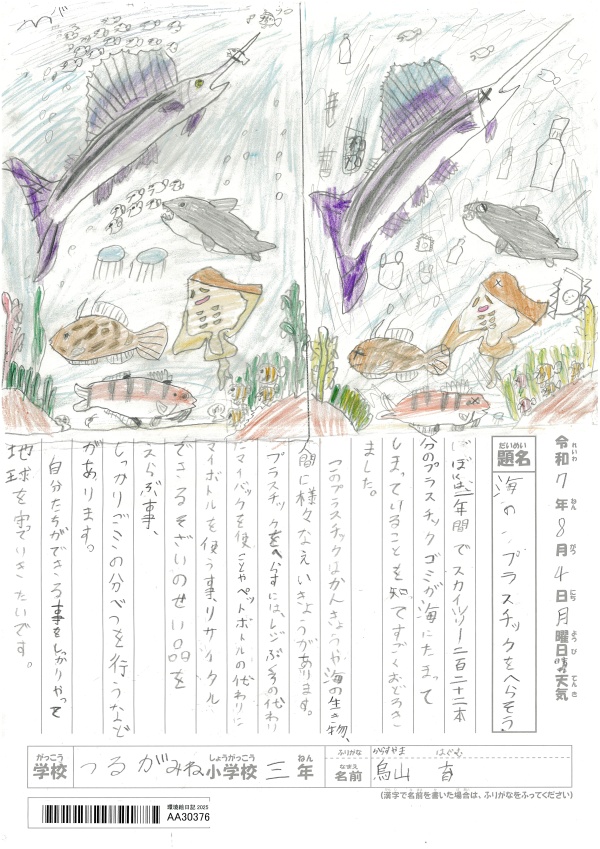 令和7年8月4日月曜日晴れ天気
れいわ ねん がつ にち ようび てんき
だいめい
題名
海のプラスチックをへらそう
ぼくは、一年間でスカイツリー二百二十二本
分のプラスチックゴミが海にたまって
しまっていることを知てすごくおどろき
ました。
このプラスチックはかんきょうや海の生き物、
人間に様々なえいきょうがあります。
プラスチックをへらすには、レジぶくろの代わり
にマイバックを使ことやペットボトルの代わりに
マイボトルを使う事、リサイクル
できるそざいのせい品を
えらぶ事、
しっかりごみの分べつを行うなど
があります。
自分たちができる事をしっかりやって
地球を守っていきたいです。
がっこう しょうがっこう ねん
学校 つるがみね小学校 三年
ふりがな からすやま はぐむ
なまえ
名前 烏山 育
(漢字で名前を書いた場合は、ふりがなをふってください)
環境絵日記 2025
AA30376